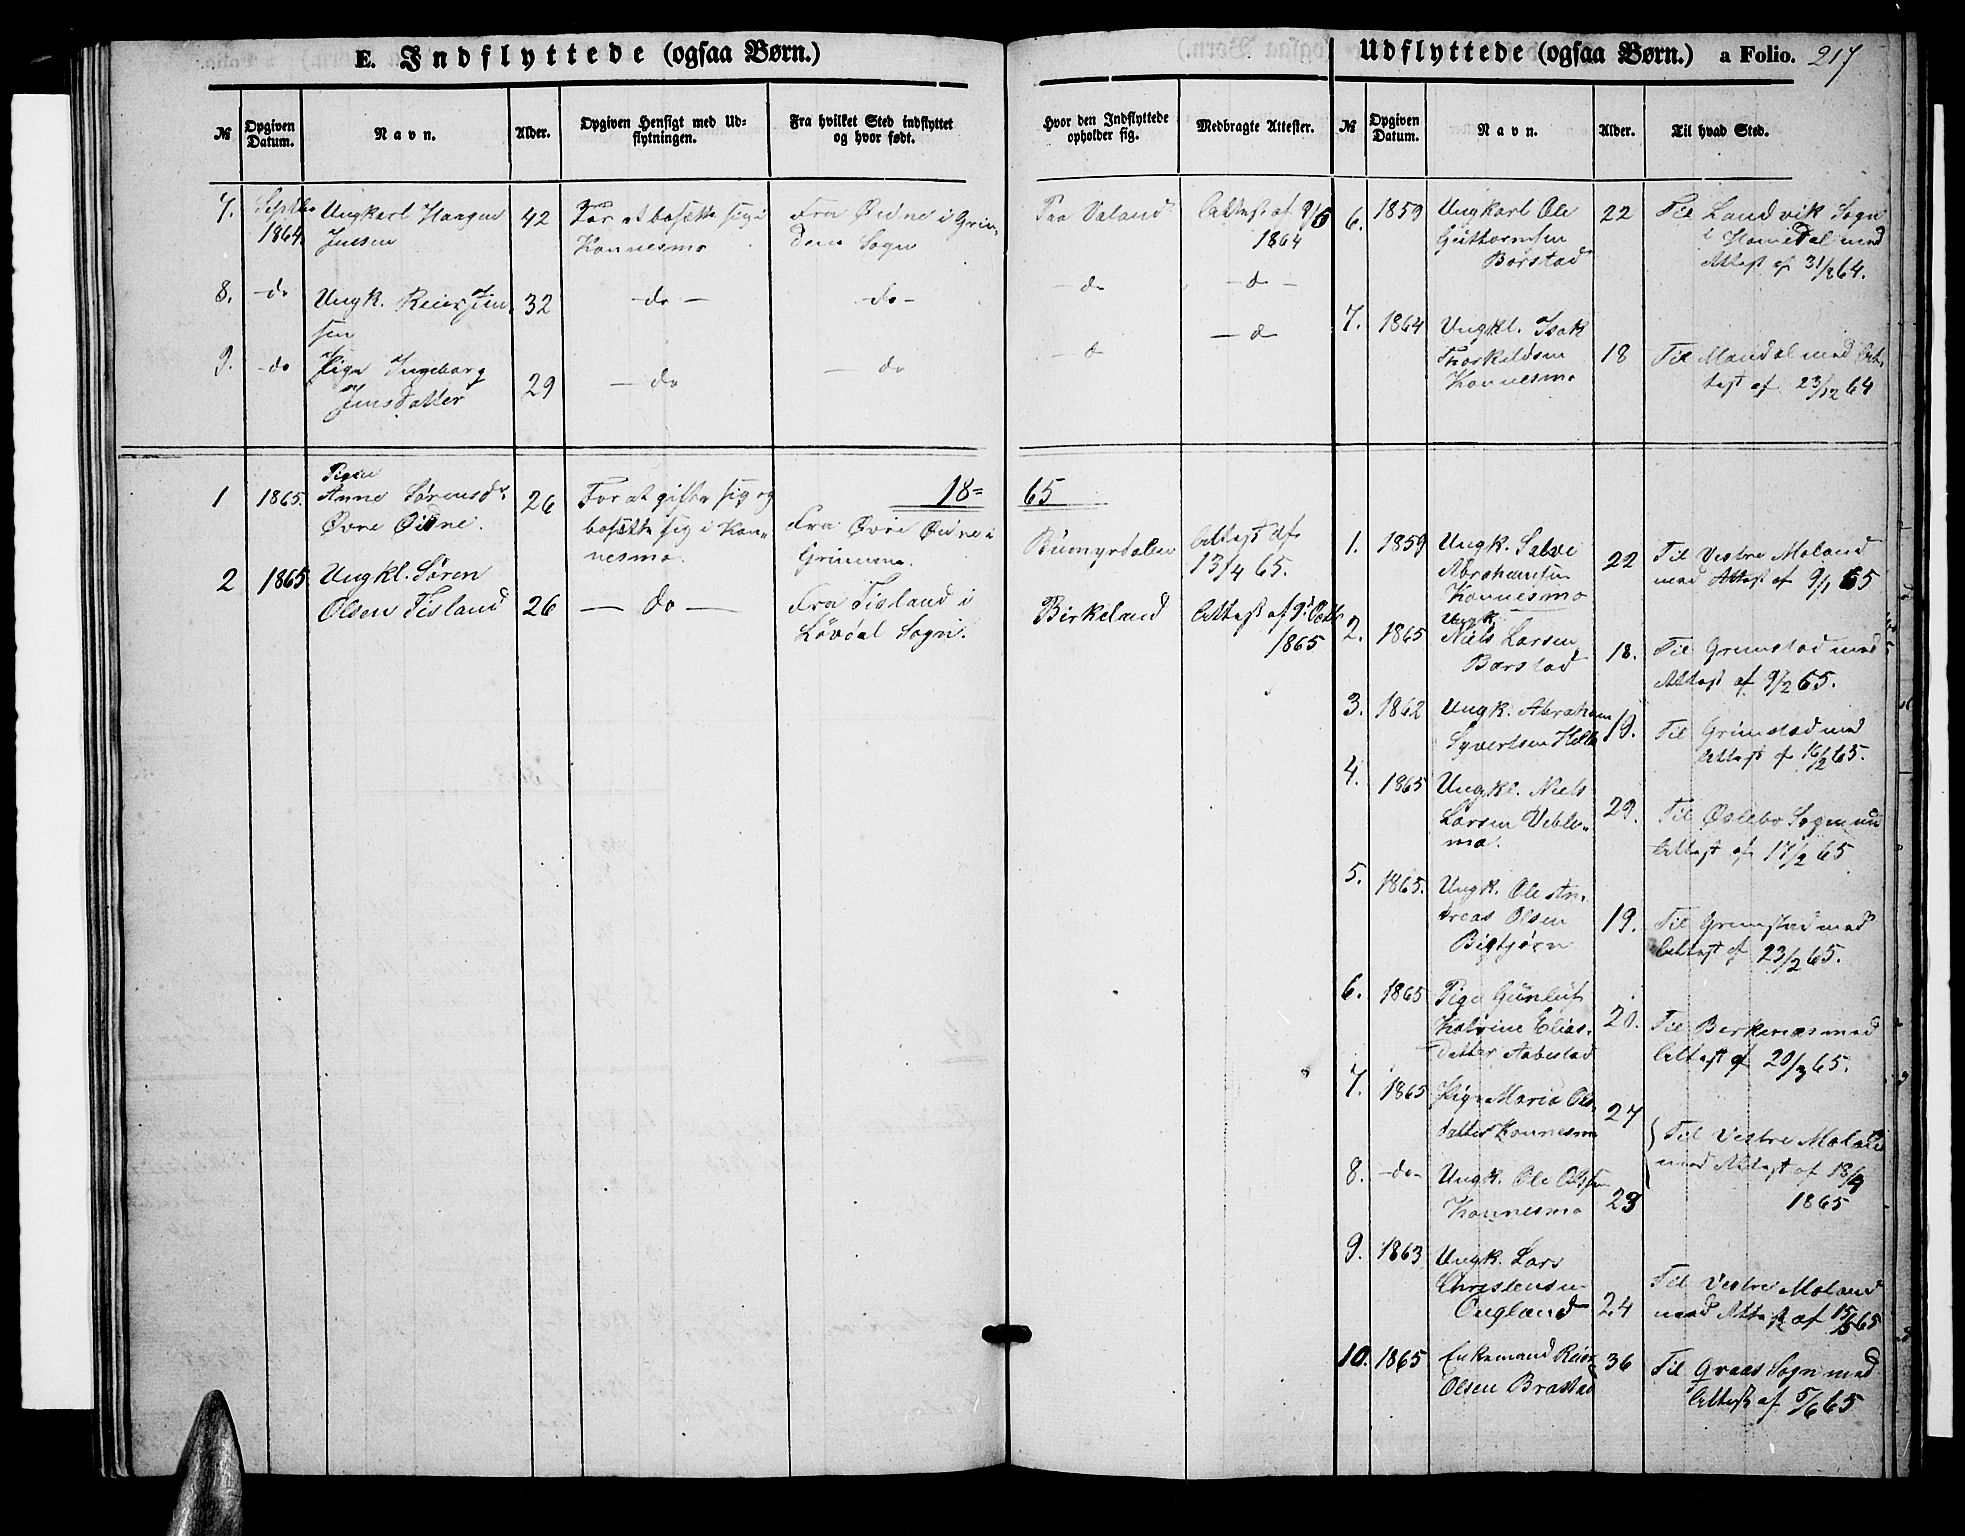 E. Indflyttede (ogsaa Børn.)
№
Opgiven Datum.
Navn.
Alder.
Opgiven Hensigt med Ud=
flytningen.
Fra hvilket Sted indflyttet
og hvor født.
Hvor den Indflyttede
opholder sig.
Medbragte Attester.
7. Septbr 1864 Ungkarl Haagen
Jensen
42
For at bosætte sig i
Konnesmo
Fra Øidne i Grin-
dem Sogn
Paa Valand
Attest af 9/6
1864
8. do Ungk. Reier Jen-
sen
32 do do do do
9. do Pige Ingeborg
Jensdatter
29 do do do do
18=65
1 1865. Pigen
Anne Sørensd.
Øvre Øidne.
26
For at gifte sig og
bosætte sig i Kon-
nesmo.
Fra Øvre Øidne i
Grimme.
Attest af
13/4 65.
2 1865 Ungkl. Søren
Olsen Fisland
26 do
Fra Fisland i
Løvdal Sogn.
Birkeland
Attest af
1865
Udflyttede (ogsaa Børn.) a Folio. 217
№
Opgiven Datum.
Navn.
Alder.
Til hvad Sted.
6. 1859 Ungkarl Ole
Guttormsen
Borstad
22
Til Landvik Sogn
i Homedal med
Attest af 31/8 64.
7. 1864 Ungkl. Isak
Thorkildsen
Konnesmo
18
Til Mandal med At-
test af 23/12 64
1. 1859 Ungk. Salve
Abrahamsen
Konnesmo
22
Til Vestre Moland
med Attest af 9/1 65
2. 1865 Ungk.
Niels Larsen
Barstad
18.
Til Grimstad med
Attest af 9/2 65.
3. 1862 Ungk. Abraham
Syvertsen
19.
Til Grimstad med
Attest af 16/2 65.
4. 1865 Ungkl. Niels
Larsen Veble-
mo.
29.
Til Øslebo Sogn med
Attest af 17/2 65
5. 1865. Ungk. Ole An-
dreas Olsen
Bigtjørn
19.
Til Grimstad med
Attest af 23/2 65.
6. 1865 Pige Gunluf
Katrine Elias-
datter Aabestad
20.
Til Berkenæs med
Attest af 20/3 65.
7. 1865 Pige Maria Ols-
datter Konnesmo
27
Til Vestre Moland
med Attest af 18/4
1865
8. do Ungk. Ole Olsen
Konnesmo
23
9. 1863 Ungk. Lars
Christensen
Ougland
24
Til Vestre Moland
med Attest af 15/5 65
10. 1865 Enkemand Reier
Olsen Brastad
36
Til Graas Sogn med
Attest af 5/6 65